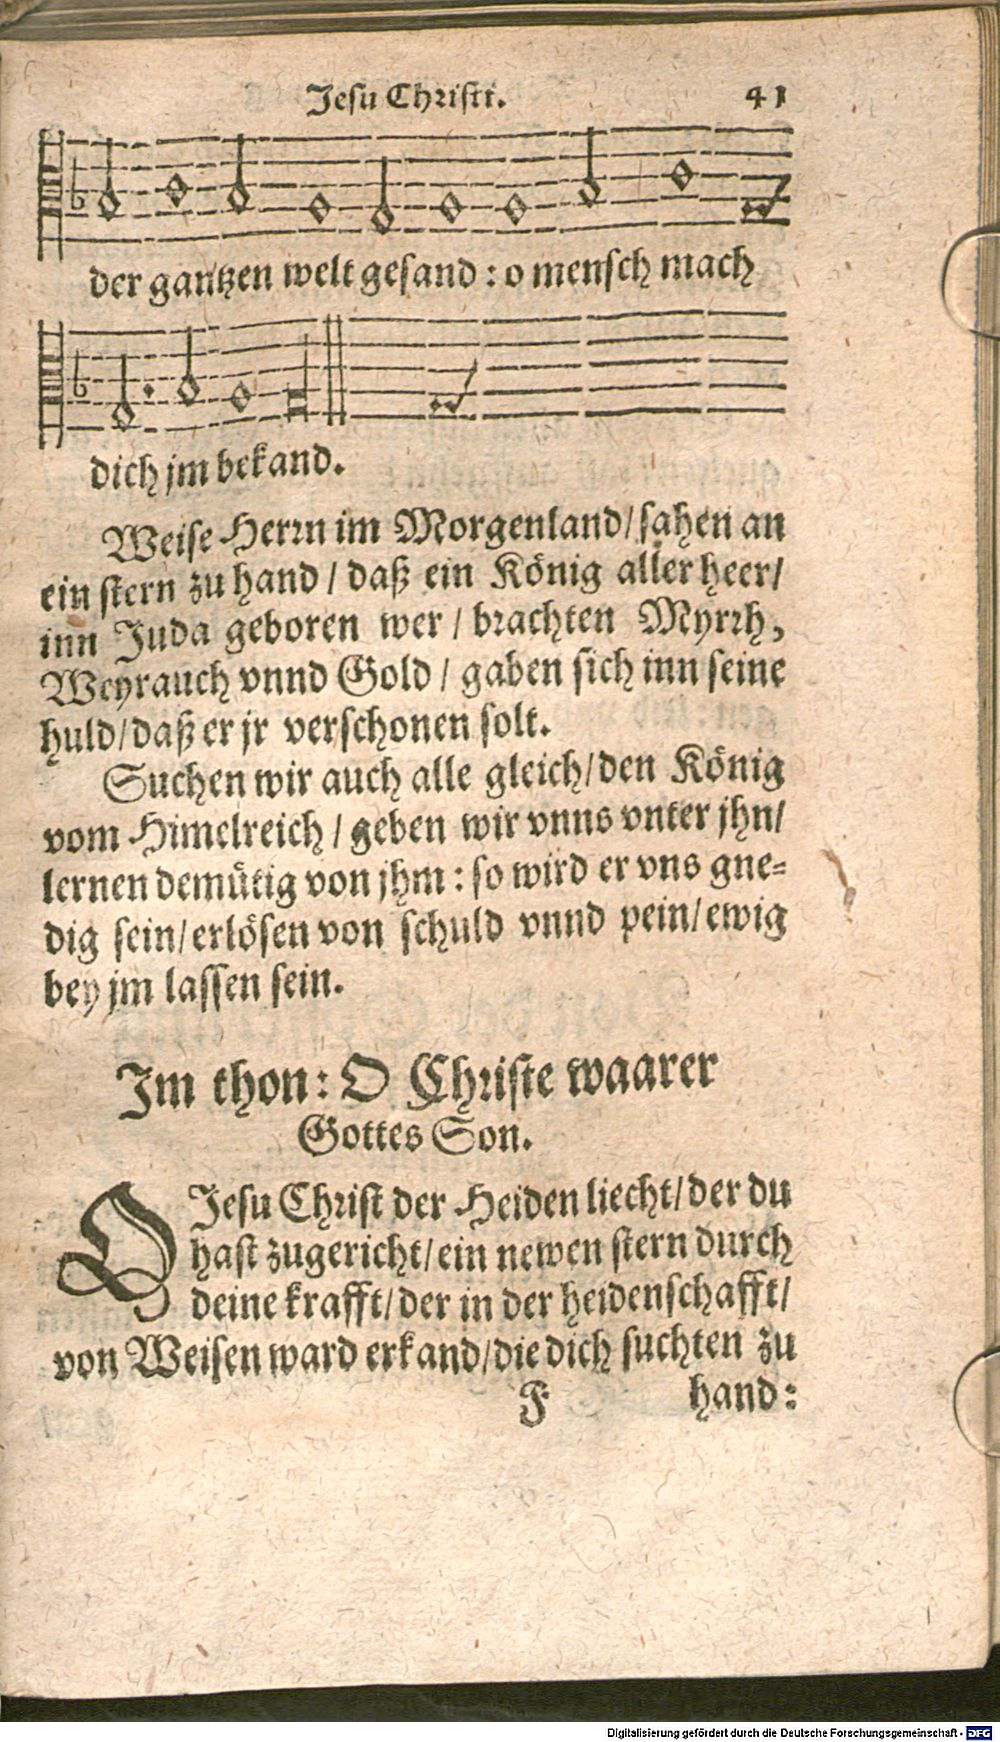 Jesu Christi. 41
der gantzen welt gesand : o mensch mach
dich jm bekand.
Weise Herrn im Morgenland/ sahen an
ein stern zu hand / daß ein König aller heer/
inn Juda geboren wer / brachten Myrrh,
Weyrauch vnnd Gold / gaben sich inn seine
huld/ daß er jr verschonen solt.
Suchen wir auch alle gleich/ den König
vom Himelreich / geben wir vnns vnter jhn/
lernen demütig von jhm : so wird er vns gne-
dig sein/ erlösen von schuld vnnd pein/ ewig
bey jm lassen sein.
Im thon: O Christe waarer
Gottes Son.
O Jesu Christ der Heiden liecht/ der du
hast zugericht/ ein newen stern durch
deine krafft/ der in der heidenschafft/
von Weisen ward erkand/ die dich suchten zu
F hand:
Digitalisierung gefördert durch die Deutsche Forschungsgemeinschaft - DFG